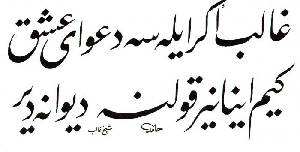 غالبا گر ایله سه دعوای عشق
کیم اینانیر قولنه دیوانه دیر
شیخ غالب